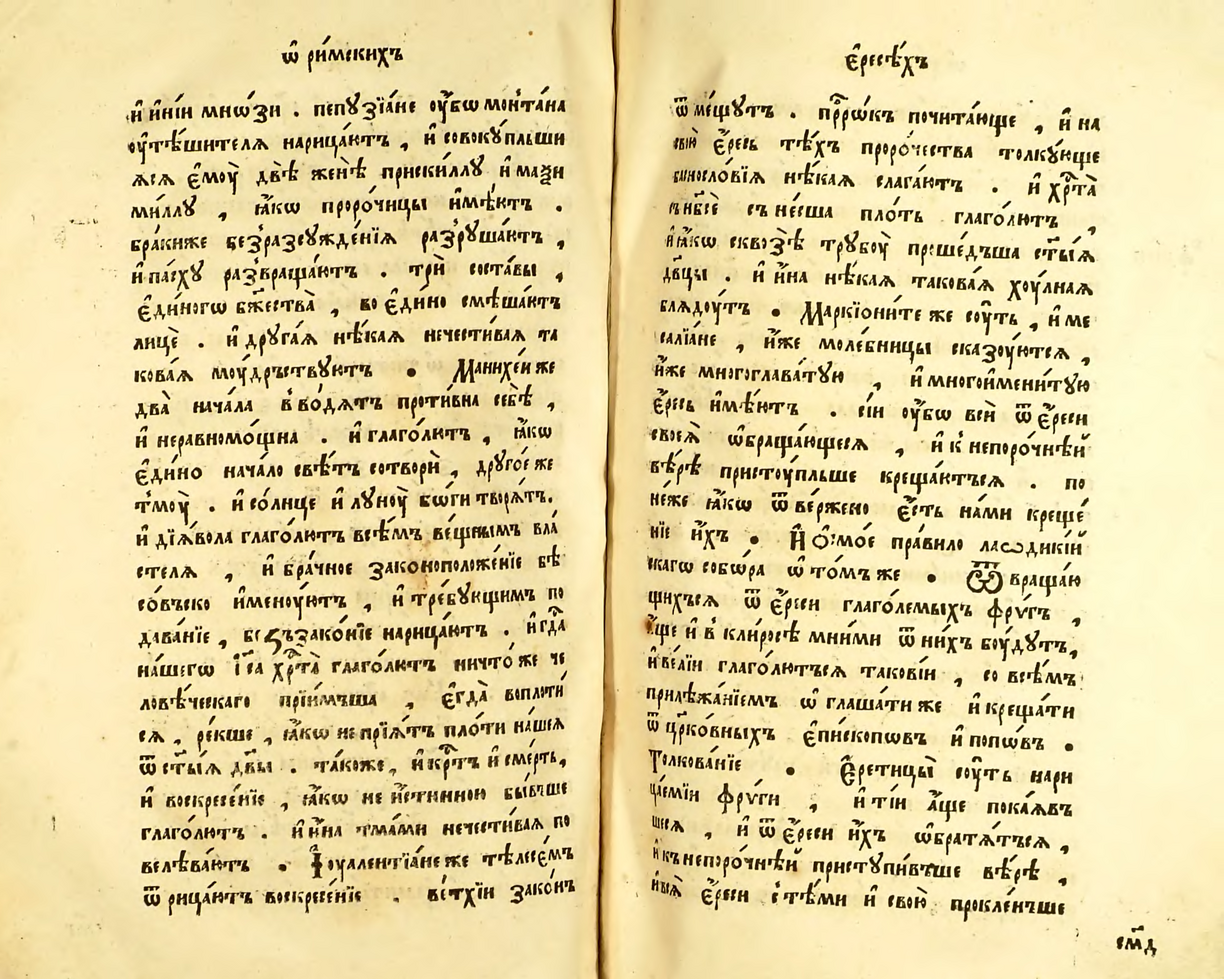 ѡ҆ ри́мскихъ
и҆ и҆ні́и мнѡ́зи . пепꙋзїа́не ᲂу҆́бѡ монта́на
ᲂу҆тѣ́шителѧ нарица́ютъ , и҆ совокꙋ́пльши
ѧсѧ є҆моу̀ двѣ̀ женѣ̀ прискиллꙋ и҆ маѯи
миллꙋ , ꙗ҆́кѡ проро́чицы и҆мѣ́ютъ .
бра́киже безразсꙋжде́нїѧ разрꙋша́ютъ ,
и҆ па́схꙋ развраща́ютъ . трѝ соста́вы ,
є҆ди́ногѡ бж҃ества̀ , во є҆ди́но смѣша́ютъ
лицѐ . и҆ дрꙋга́ѧ нѣ́каѧ нечести́ваѧ та
кова́ѧ моу́дръствꙋютъ . Манихе́иже
два̀ нача́ла вво́дѧтъ проти́вна себѣ̀ ,
и҆ неравномо́щна . и҆ глаго́лютъ , ꙗ҆́кѡ
є҆ди́но нача́ло свѣ́тъ сотворѝ , дрꙋго́е же
тмоу̀ . и҆ со́лнце и҆ лꙋноу̀ бѡ́ги творѧ́тъ.
и҆ дїѧ́вола глаго́лютъ всѣ́мъ ве́щнымъ вла́
стелѧ , и҆ бра́чное законоположе́нїе бѣ
со́въско и҆меноу́ютъ , и҆ тре́бꙋющимъ по
дава́нїе , безъзако́нїе нарица́ютъ . и҆ гдⷭ҇а
на́шегѡ і҆са хрⷭ҇та̀ глаго́лютъ ничто́же че
ловѣ́ческаго прїи́мъша , є҆гда̀ воплоти́
сѧ , ре́кше , ꙗ҆́кѡ не прїѧ́тъ пло́ти на́шеѧ
ѿ ст҃ы́ѧ дв҃ы . та́коже , и҆ крⷭ҇тъ и҆ сме́рть,
и҆ воскресе́нїе , ꙗ҆́кѡ не и҆́стинною бы́вше
глаго́лютъ . и҆ и҆́на тма́ми нечести́ваѧ по
велѣва́ютъ . І҆оуалентїа́не же тѣлесе́мъ
ѿрица́ютъ воскресе́нїе . ве́тхїи зако́нъ
є҆́ресѣ́хъ
ѿме́щꙋтъ . прⷪ҇рѡ́къ почита́юще , и҆ на
свою̀ є҆́ресь тѣ́хъ проро́чества толкꙋ́юще
винослові́ѧ нѣ́каѧ слага́ютъ . и҆ хрⷭ҇та̀
съ нб҃сѐ съне́сша пло́ть глаго́лютъ ,
и҆ ꙗ҆́кѡ сквозѣ̀ трꙋбоу̀ проше́дъша ст҃ы́ѧ
дв҃цы . и҆ и҆́на нѣ́каѧ такова́ѧ хоу́лнаѧ
блѧдоу́тъ . Маркїони́те же соу́ть , и҆ ме
салїа́не , и҆́же моле́бницы сказоу́ютсѧ ,
и҆́же многоглава́тꙋю , и҆ многоимени́тꙋю
є҆́ресь и҆мѣ́ютъ . сі́и ᲂу҆́бѡ всѝ ѿ є҆́реси
своеѧ̀ ѡ҆браща́ющесѧ , и҆ к непоро́чнѣи
вѣ́рѣ пристоу́пльше креща́ютъсѧ . по
не́же ꙗ҆́кѡ ѿве́ржено є҆́сть на́ми креще́
нїе и҆́хъ . И҆ о҆смо́е пра́вило лаѡдикі́й
скагѡ собѡ́ра ѡ҆ то́мъ же . Ѿ враща́ю
щихъсѧ ѿ є҆́реси глаго́лемыхъ фрѵ́гъ ,
а҆́ще и҆ в кли́росѣ мни́ми ѿ ни́хъ боу́дꙋтъ,
и҆ ве́лїи глаго́лютъсѧ такові́и , со всѣ́мъ
прилѣжа́нїемъ ѡ҆глаша́ти же и҆ креща́ти
ѿ цр҃ко́вныхъ є҆пи́скопѡвъ и҆ попѡ́въ .
Толкова́нїе . Є҆рети́цы̀ соу́ть нари
ца́емїи фрѵ́ги , и҆ ті́и а҆́ще пока́ѧвъ
шесѧ , и҆ ѿ є҆́реси и҆́хъ ѡ҆братѧ́тъсѧ ,
и҆ къ непоро́чнѣи пристꙋпи́въше вѣ́рѣ ,
и҆ всѧ̀ є҆́реси с тѣ́ми и҆ свою̀ проклѐнъше
смд҃